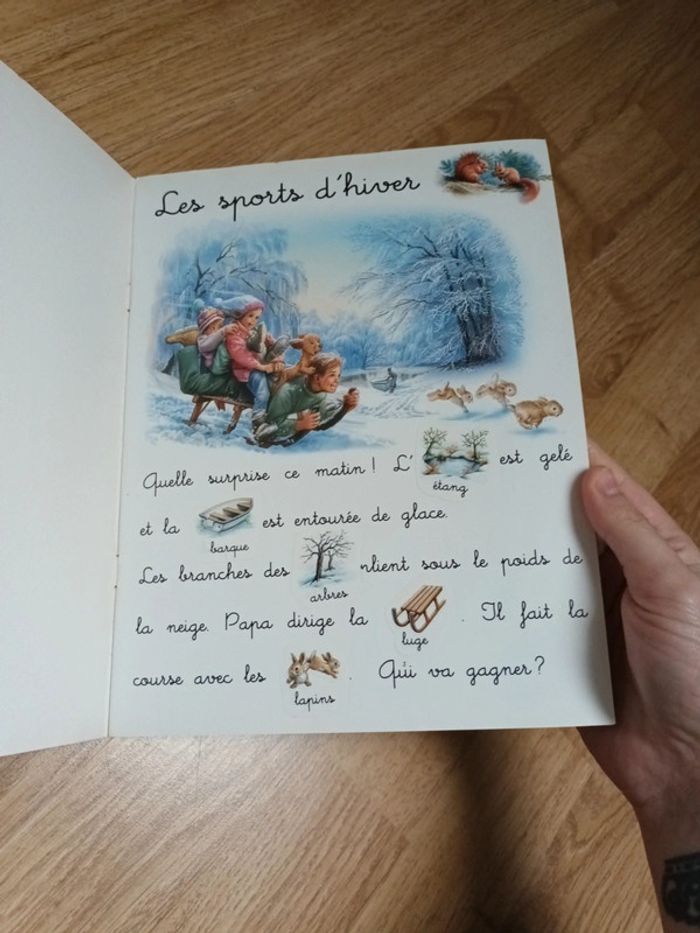 Les sports d'hiver
Quelle surprise ce matin ! L' étang est gelé
et la barque est entourée de glace.
Les branches des arbres plient sous le poids de
la neige. Papa dirige la luge . Il fait la
course avec les lapins . Qui va gagner ?